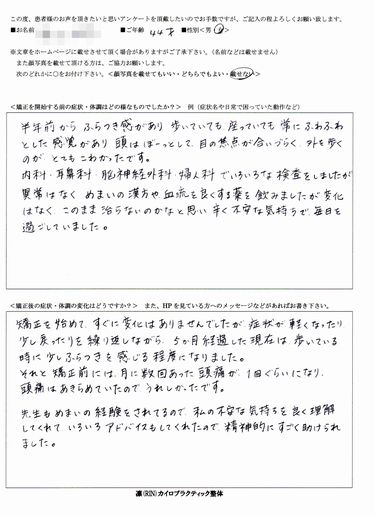 この度、患者様のお声を頂きたいと思いアンケートを頂戴したいのでお手数ですが、ご記入の程よろしくお願い致します。
■お名前 ■ご年齢 44才 ■性別＜男・女＞
※文章をホームページに載せさせて頂く場合がありますがご了承下さい。（名前などは載せません）
また顔写真を載せて頂ける方は、ご協力お願いします。
次のどれかに○をお付け下さい。＜顔写真を載せてもいい・どちらでもよい・載せない＞
＜矯正を開始する前の症状・体調はどの様なものでしたか？＞ 例（症状名や日常で困っていた動作など）
半年前から ふらつき感があり 歩いていても 座っていても 常に ふわふわ
とした感覚があり 頭は ぼーっとして、目の焦点が合いづらく、外を歩く
のが、とても こわかったです。
内科・耳鼻科・脳神経外科・婦人科 でいろいろな検査をしましたが
異常はなく めまいの漢方や血流を良くする薬を飲みましたが変化
はなく、このまま 治らないのかなと思い 辛く 不安な気持ちで 毎日を
過ごしていました。
＜矯正後の症状・体調の変化はどうですか？＞ また、HPを見ている方へのメッセージなどがあればお書き下さい。
矯正を始めて、すぐに変化はありませんでしたが、症状が軽くなったり
少し戻ったりを繰り返しながら、5か月経過した現在は、歩いている
時に少しふらつきを感じる程度になりました。
それと矯正前には、月に数回あった頭痛が、1回ぐらいになり、
頭痛はあきらめていたので うれしかったです。
先生もめまいの経験をされてるので、私の不安な気持ちを良く理解
してくれて いろいろ アドバイスもしてくれたので、精神的にすごく助けられ
ました。
凛(RIN)カイロプラクティック整体